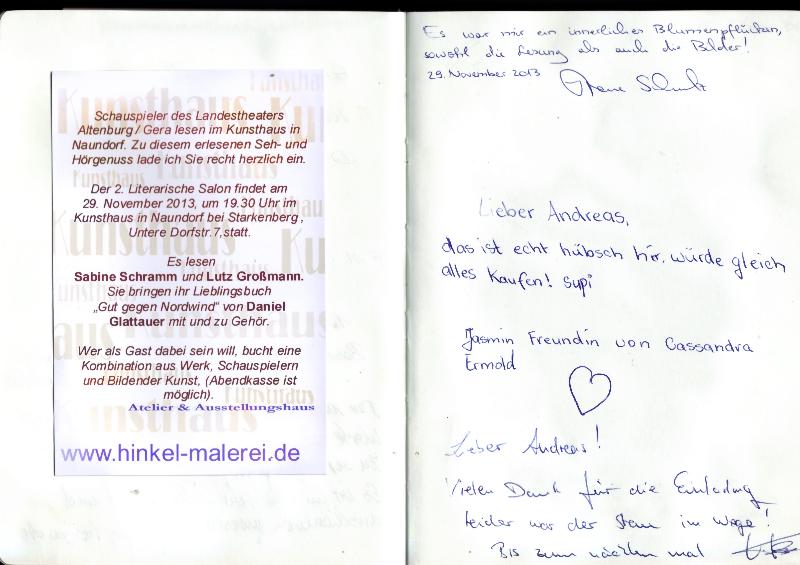 Schauspieler des Landestheaters
Altenburg / Gera lesen im Kunsthaus in
Naundorf. Zu diesem erlesenen Seh- und
Hörgenuss lade ich Sie recht herzlich ein.
Der 2. Literarische Salon findet am
29. November 2013, um 19.30 Uhr im
Kunsthaus in Naundorf bei Starkenberg ,
Untere Dorfstr.7,statt.
Es lesen
Sabine Schramm und Lutz Großmann.
Sie bringen ihr Lieblingsbuch
„Gut gegen Nordwind“ von Daniel
Glattauer mit und zu Gehör.
Wer als Gast dabei sein will, bucht eine
Kombination aus Werk, Schauspielern
und Bildender Kunst, (Abendkasse ist
möglich).
Atelier & Ausstellungshaus
www.hinkel-malerei.de
Es war mir ein innerliches Blumenpflücken,
sowohl die Lesung als auch die Bilder!
29. November 2013
Lieber Andreas,
das ist echt hübsch hir. würde gleich
alles Kaufen! supi
Jasmin Freundin von Cassandra
Ermold
Lieber Andreas!
Vielen Dank für die Einladung
leider war der im Wege!
Bis zum nächsten mal